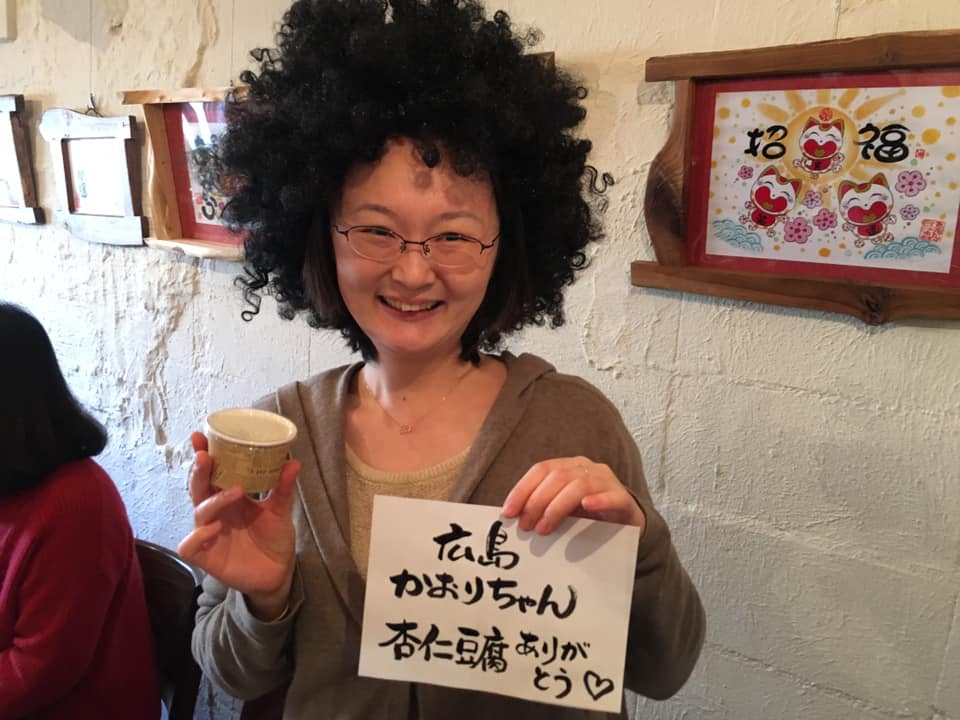 招福
広島
かおりちゃん
杏仁豆腐 ありが
とう♡